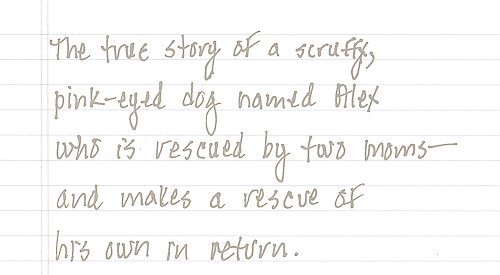 The true story of a scruffy,
pink-eyed dog named Alex
who is rescued by two moms—
and makes a rescue of
his own in return.